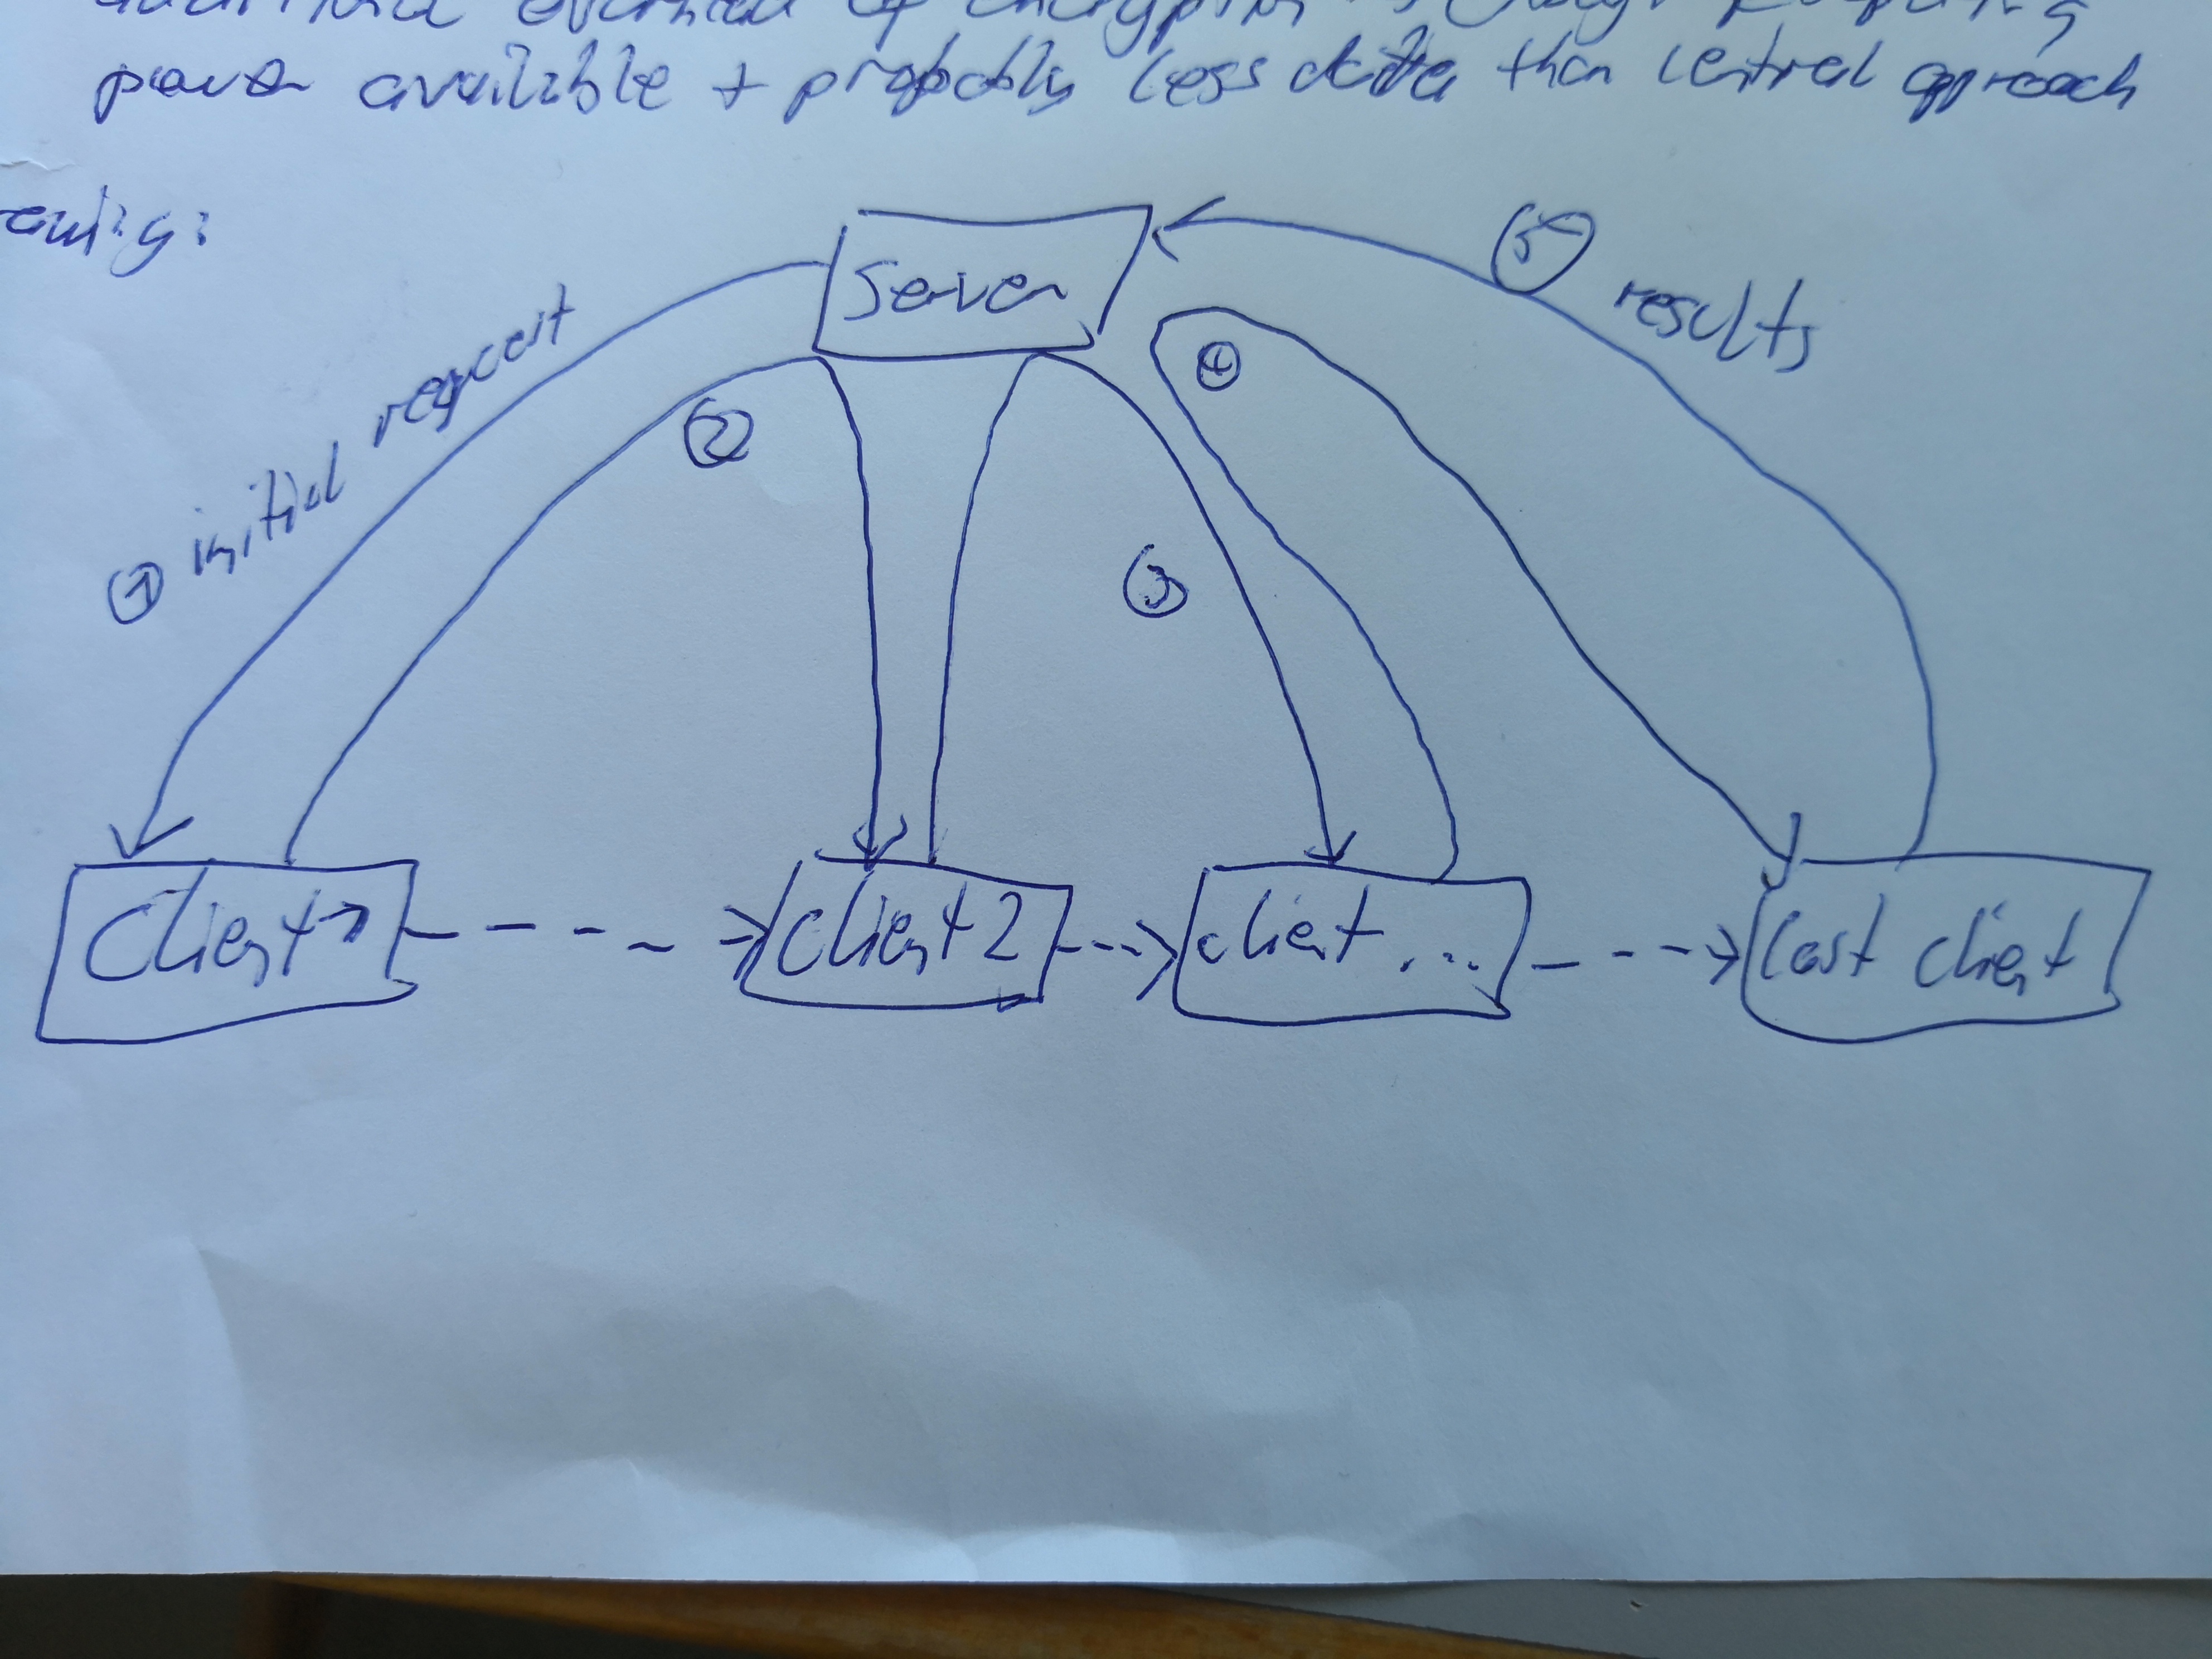 overhead of encryption
power available + probably less data than central approach
Server
5
results
① initial request
2
4
3
Client 1
client 2
client ...
last client